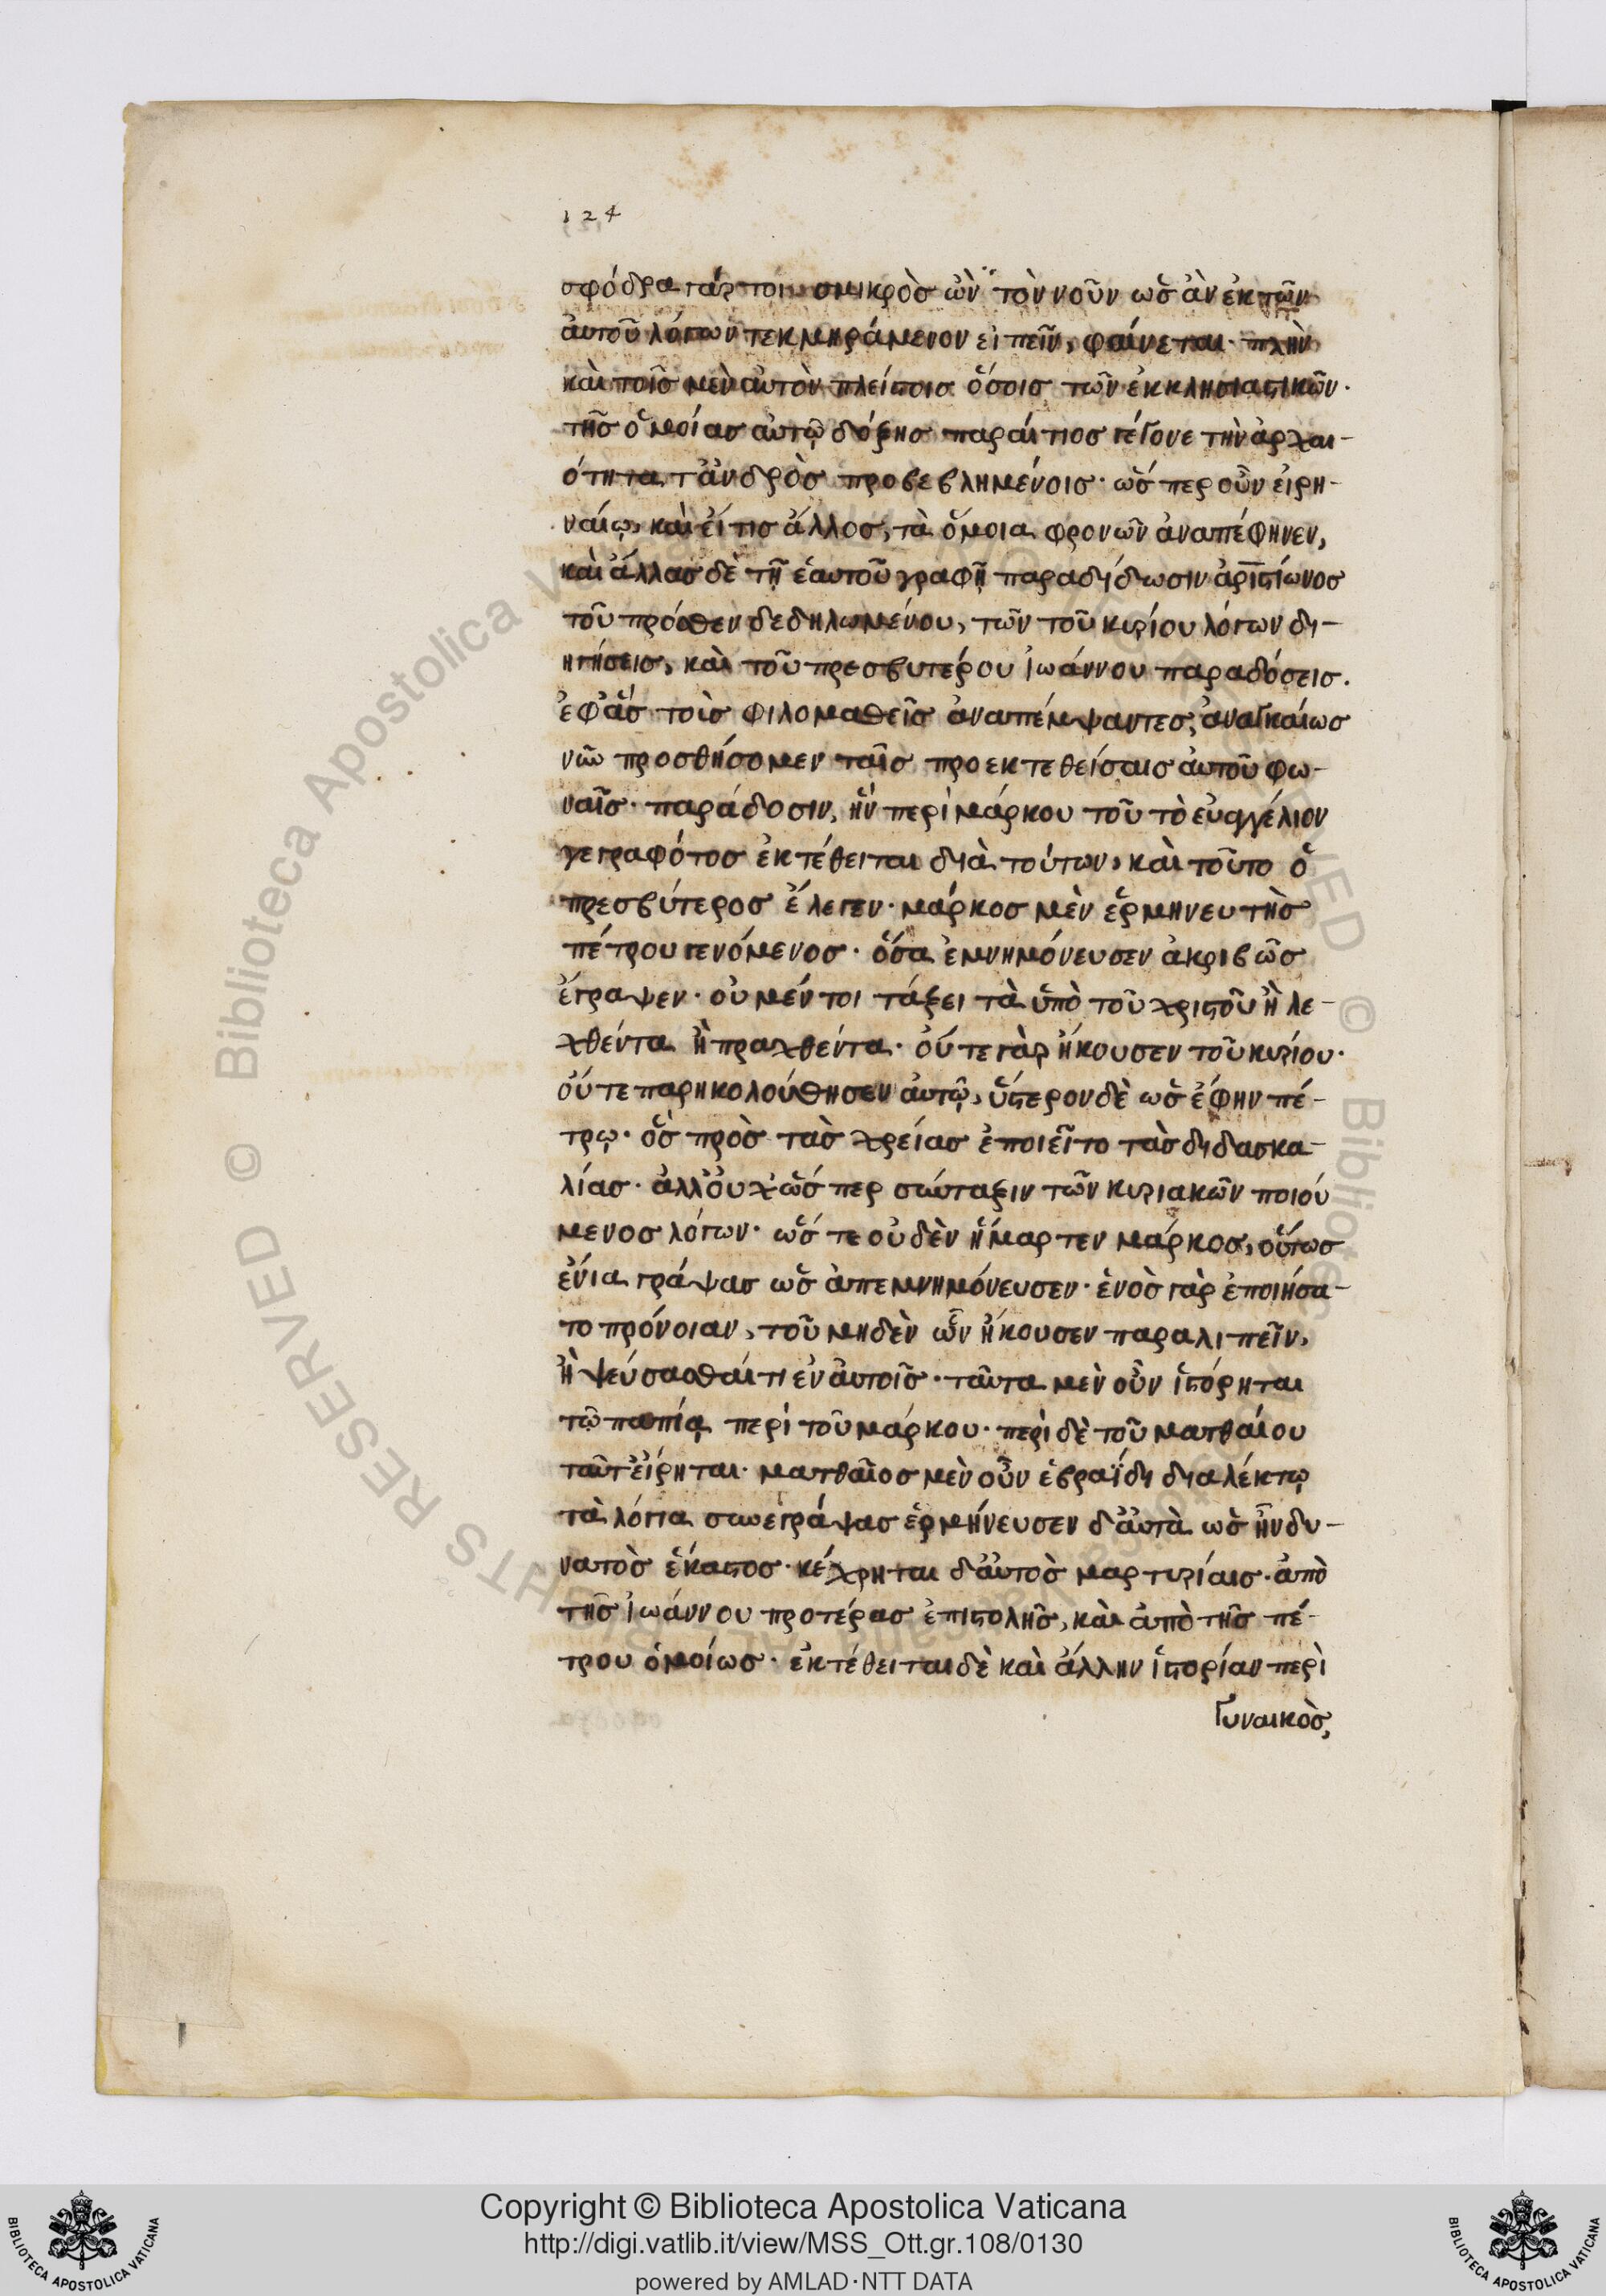 124
σφόδρα γάρ τοι σμικρὸς ὢν τὸν νοῦν ὡς ἂν ἐκ τῶν
αὐτοῦ λόγων τεκμηράμενον εἰπεῖν, φαίνεται· πλὴν
καὶ τοῖς μὲν αὐτὸν πλείστοις ὅσοις τῶν ἐκκλησιαστικῶν·
τῆς ὁμοίας αὐτῷ δόξης παραίτιος γέγονε τὴν ἀρχαι-
ότητα τἀνδρὸς προβεβλημένοις· ὥσπερ οὖν εἰρη-
ναίῳ, καὶ εἴ τις ἄλλος, τὰ ὅμοια φρονῶν ἀναπέφηνεν,
καὶ ἄλλας δὲ τῇ ἑαυτοῦ γραφῇ παραδίδωσιν ἀριστίωνος
τοῦ πρόσθεν δεδηλωμένου, τῶν τοῦ κυρίου λόγων δι-
ηγήσεις, καὶ τοῦ πρεσβυτέρου ἰωάννου παραδόσεις.
ἐφ' ἃς τοὺς φιλομαθεῖς ἀναπέμψαντες, ἀναγκαίως
νῦν προσθήσομεν ταῖς προεκτεθείσαις αὐτοῦ φω-
ναῖς· παράδοσιν, ἣν περὶ μάρκου τοῦ τὸ εὐαγγέλιον
γεγραφότος ἐκτέθειται διὰ τούτων, καὶ τοῦτο ὁ
πρεσβύτερος ἔλεγεν· μάρκος μὲν ἑρμηνευτὴς
πέτρου γενόμενος· ὅσα ἐμνημόνευσεν ἀκριβῶς
ἔγραψεν· οὐ μέν τοι τάξει τὰ ὑπὸ τοῦ χριστοῦ ἢ λε-
χθέντα ἢ πραχθέντα· οὔτε γὰρ ἤκουσεν τοῦ κυρίου·
οὔτε παρηκολούθησεν αὐτῷ, ὕστερον δὲ ὡς ἔφην πέ-
τρῳ· ὃς πρὸς τὰς χρείας ἐποιεῖτο τὰς διδασκα-
λίας· ἀλλ' οὐχ ὥσπερ σύνταξιν τῶν κυριακῶν ποιού
μενος λόγων· ὥστε οὐδὲν ἥμαρτεν μάρκος, οὕτως
ἔνια γράψας ὡς ἀπεμνημόνευσεν· ἑνὸς γὰρ ἐποιήσα-
το πρόνοιαν, τοῦ μηδὲν ὧν ἤκουσεν παραλιπεῖν,
ἢ ψεύσασθαί τι ἐν αὐτοῖς· ταῦτα μὲν οὖν ἱστόρηται
τῷ παπίᾳ περὶ τοῦ μάρκου· περὶ δὲ τοῦ ματθαίου
ταῦτ' εἴρηται· ματθαῖος μὲν οὖν ἑβραΐδι διαλέκτῳ
τὰ λόγια συνεγράψας ἑρμήνευσεν δ' αὐτὰ ὡς ἦν δυ-
νατὸς ἕκαστος· κέχρηται δ' αὐτὸς μαρτυρίαις· ἀπὸ
τῆς ἰωάννου προτέρας ἐπιστολῆς, καὶ ἀπὸ τῆς πέ-
τρου ὁμοίως· ἐκτέθειται δὲ καὶ ἄλλην ἱστορίαν περὶ
γυναικὸς,
Copyright © Biblioteca Apostolica Vaticana
http://digi.vatlib.it/view/MSS_Ott.gr.108/0130
powered by AMLAD·NTT DATA